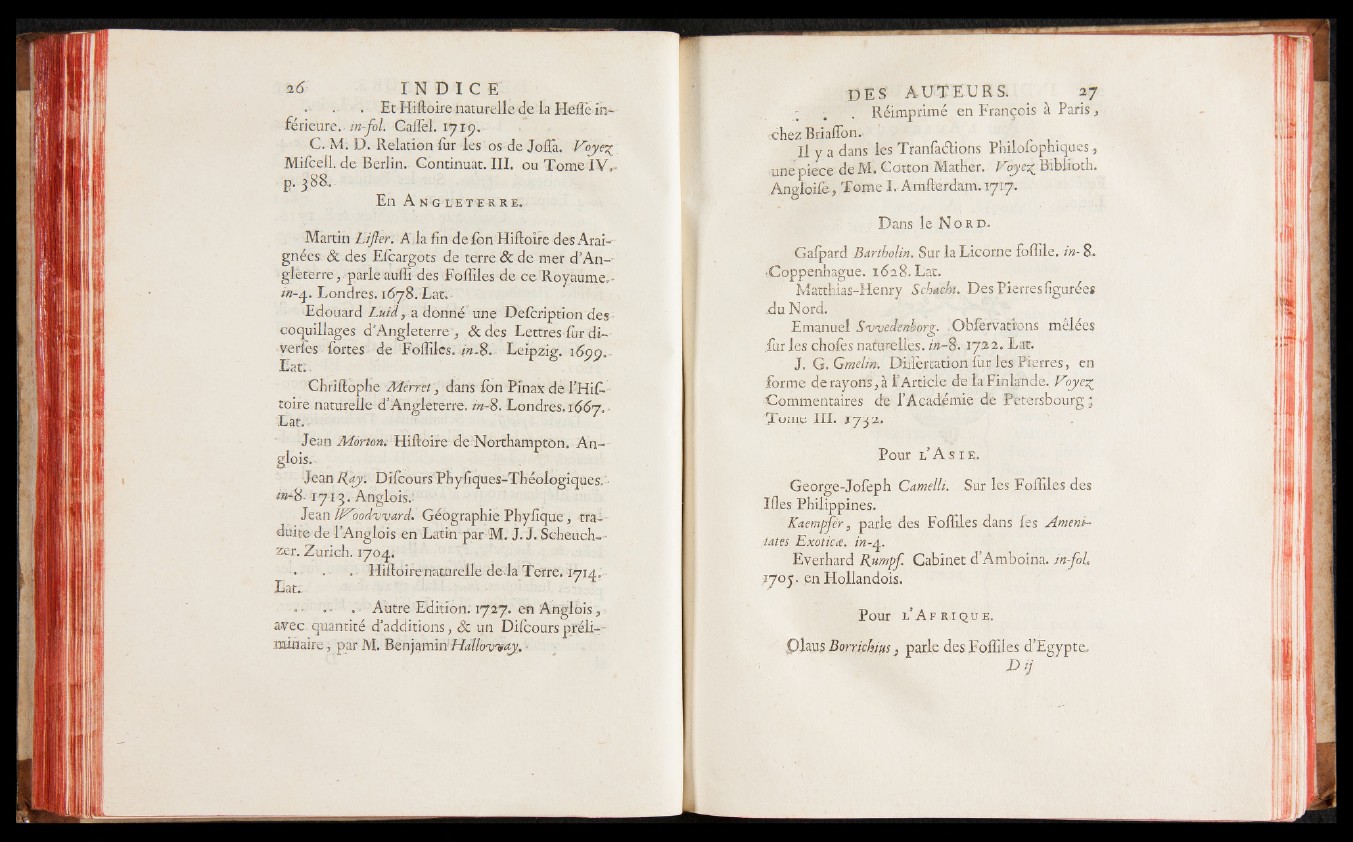 26 INDICE
. . . Et Hiſtoire naturelle de la Heſſe in-
férieure. in-fol. Caſſel. 1719.
C. M. D. Relation ſur les os de Joſſa. Voyez
Miſcell. de Berlin. Continuat. III. ou Tome IV.
p. 388.
En ANGLETERRE.
Martin Liſter. A la fin de ſon Hiſtoire des Arai-
gnées & des Eſcargots de terre & de mer d'An-
gleterre, parle auſſi des Foſſiles de ce Royaume.
in-4. Londres. 1678. Lat.
Edouard Luid, a donné une Deſcription des
coquillages d'Angleterre, & des Lettres ſur di-
verſes ſortes de Foſſiles. in-8. Leipzig. 1699.
Lat.
Chriſtophe Mérret, dans ſon Pinax de l'Hiſ-
toire naturelle d'Angleterre. in-8. Londres. 1667.
Lat.
Jean Morton. Hiſtoire de Northampton. An-
glois.
Jean Ray. Diſcours Phyſiques-Théologiques.
in-8. 1713. Anglois.
Jean VVoodvvard. Géographie Phyſique, tra-
duite de l'Anglois en Latin par M. J. J. Scheuch-
zer. Zurich. 1704.
. . . Hiſtoire naturelle de la Terre. 1714.
Lat.
. . . Autre Edition. 1727. en Anglois,
avec quantité d'additions, & un Diſcours préli-
minaire, par M. Benjamin Hallovvay.
DES AUTEURS. 27
. . . Réimprimé en François à Paris,
chez Briaſſon.
Il y a dans les Tranſactions Philoſophiques,
une piéce de M. Cotton Mather. Voyez Biblioth.
Angloiſe, Tome I. Amſterdam. 1717.
Dans le NORD.
Gaſpard Bartholin. Sur la Licorne foſſile. in-8.
Coppenhague. 1628. Lat.
Matthias-Henry Schacht. Des Pierres figurées
du Nord.
Emanuel Svvedenborg. Obſervations mêlées
ſur les choſes naturelles. in-8. 1722. Lat.
J. G. Gmelin. Diſſertation ſur les Pierres, en
forme de rayons, à l'Article de la Finlande. Voyez
Commentaires de l'Académie de Petersbourg;
Tome III. 1732.
Pour L'ASIE.
George-Joſeph Camelli. Sur les Foſſiles des
Iſles Philippines.
Kaempfer, parle des Foſſiles dans ſes Ameni-
tates Exoticæ. in-4.
Everhard Rumpf. Cabinet d'Amboina. in-fol.
1705. en Hollandois.
Pour L'AFRIQUE.
Olaus Borrichius, parle des Foſſiles d'Egypte.
D ij